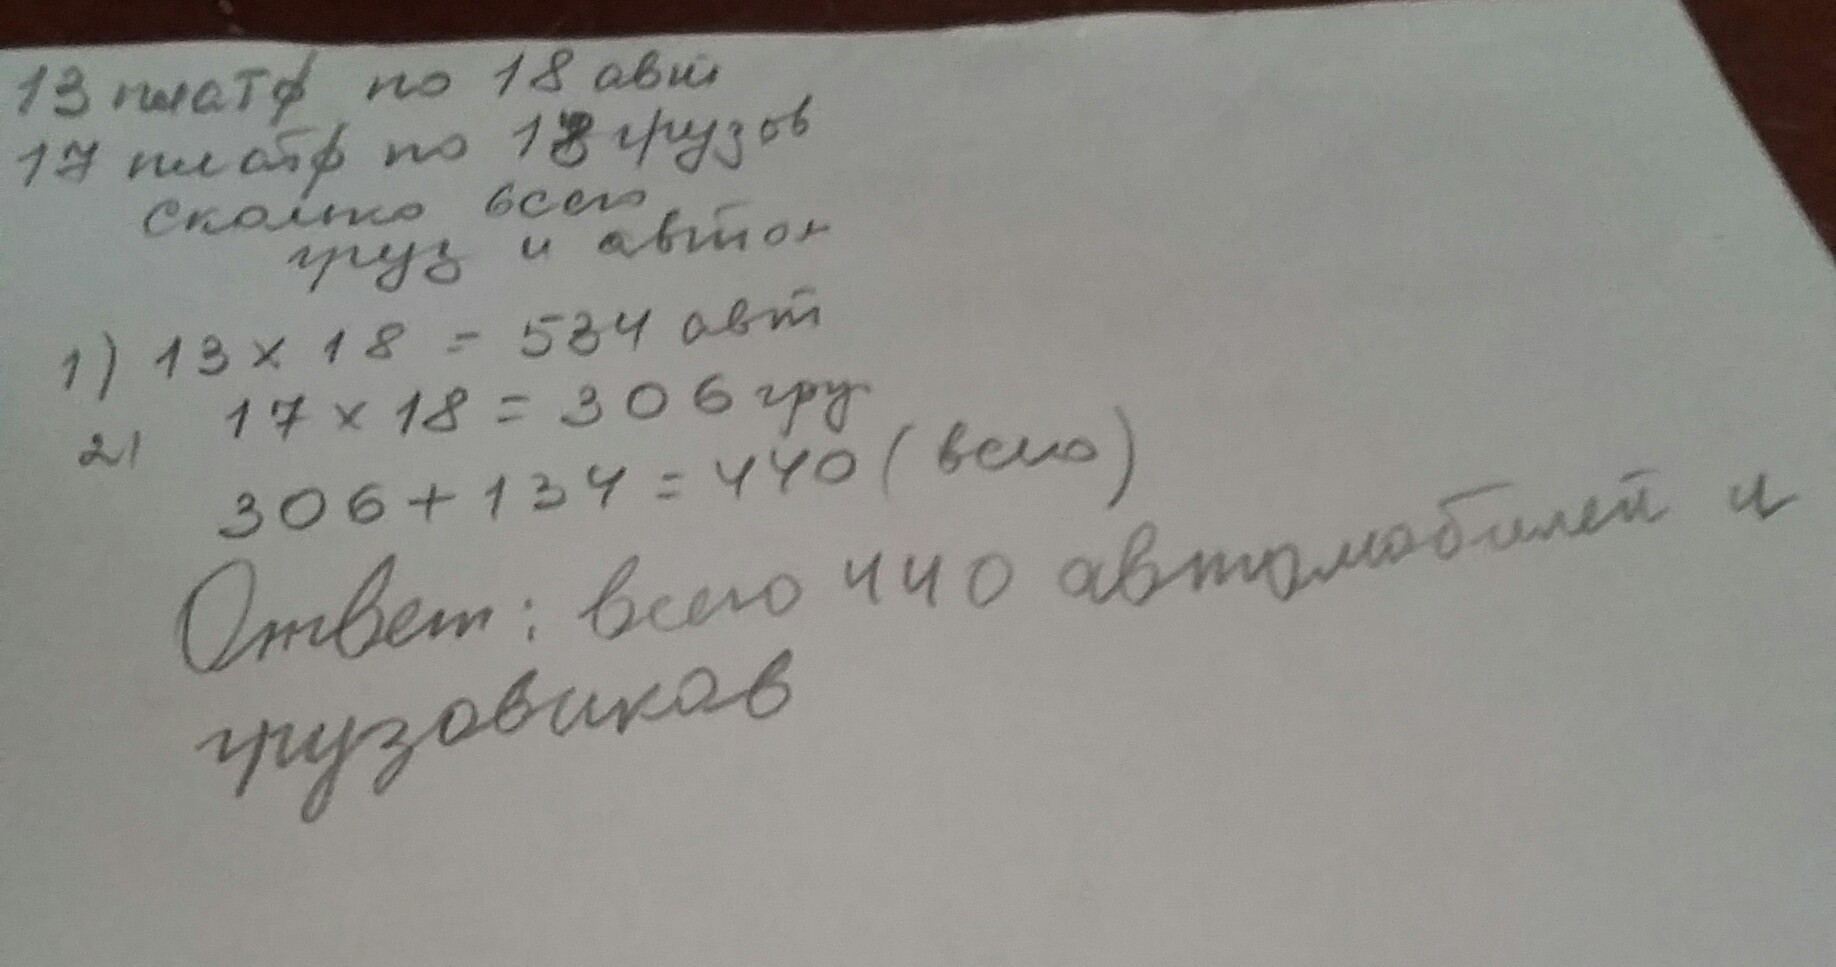 13 платф по 18 авт
17 платф по 18 грузов
Сколько всего
груз и автом
1) 13 × 18 = 534 авт
17 × 18 = 306 гру
2)
306 + 134 = 440 (всего)
Ответ: всего 440 автомобилей и
грузовиков